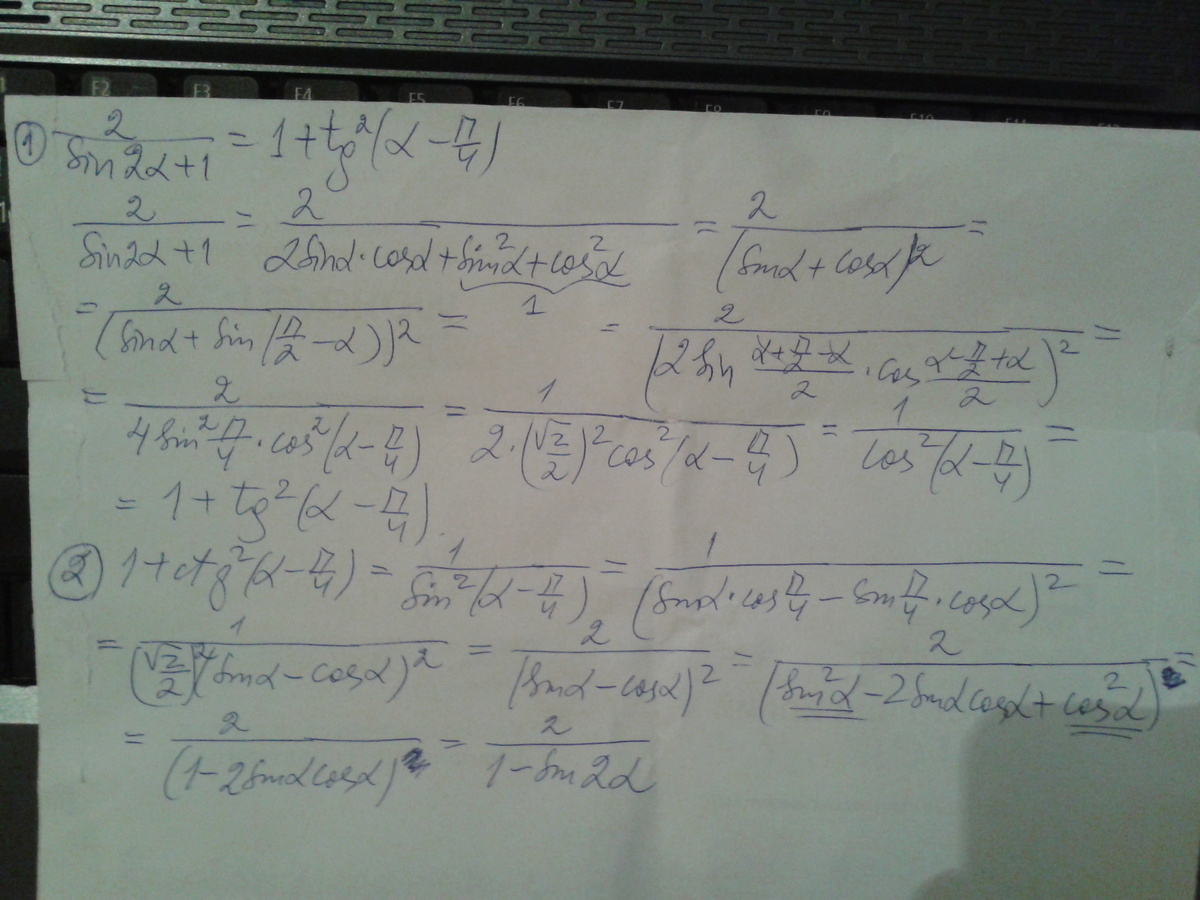 F2 F3 F4 F5 F6 F7 F8 F9 F10 F11 F12
① 2/(sin2α+1) = 1+tg²(α−π/4)
2/(sin2α+1) = 2/(2sinα·cosα+sin²α+cos²α) = 2/(sinα+cosα)² =
1
= 2/(sinα+sin(π/2−α))² = = 2/(2sin (α+π/2−α)/2 · cos (α−π/2+α)/2)² =
= 2/(4sin²π/4·cos²(α−π/4)) = 1/(2·(√2/2)²cos²(α−π/4)) = 1/cos²(α−π/4) =
= 1+tg²(α−π/4).
② 1+ctg²(α−π/4) = 1/sin²(α−π/4) = 1/(sinα·cosπ/4−sinπ/4·cosα)² =
= 1/((√2/2)²(sinα−cosα)²) = 2/(sinα−cosα)² = 2/(sin²α−2sinαcosα+cos²α) =
= 2/(1−2sinαcosα) = 2/(1−sin2α)